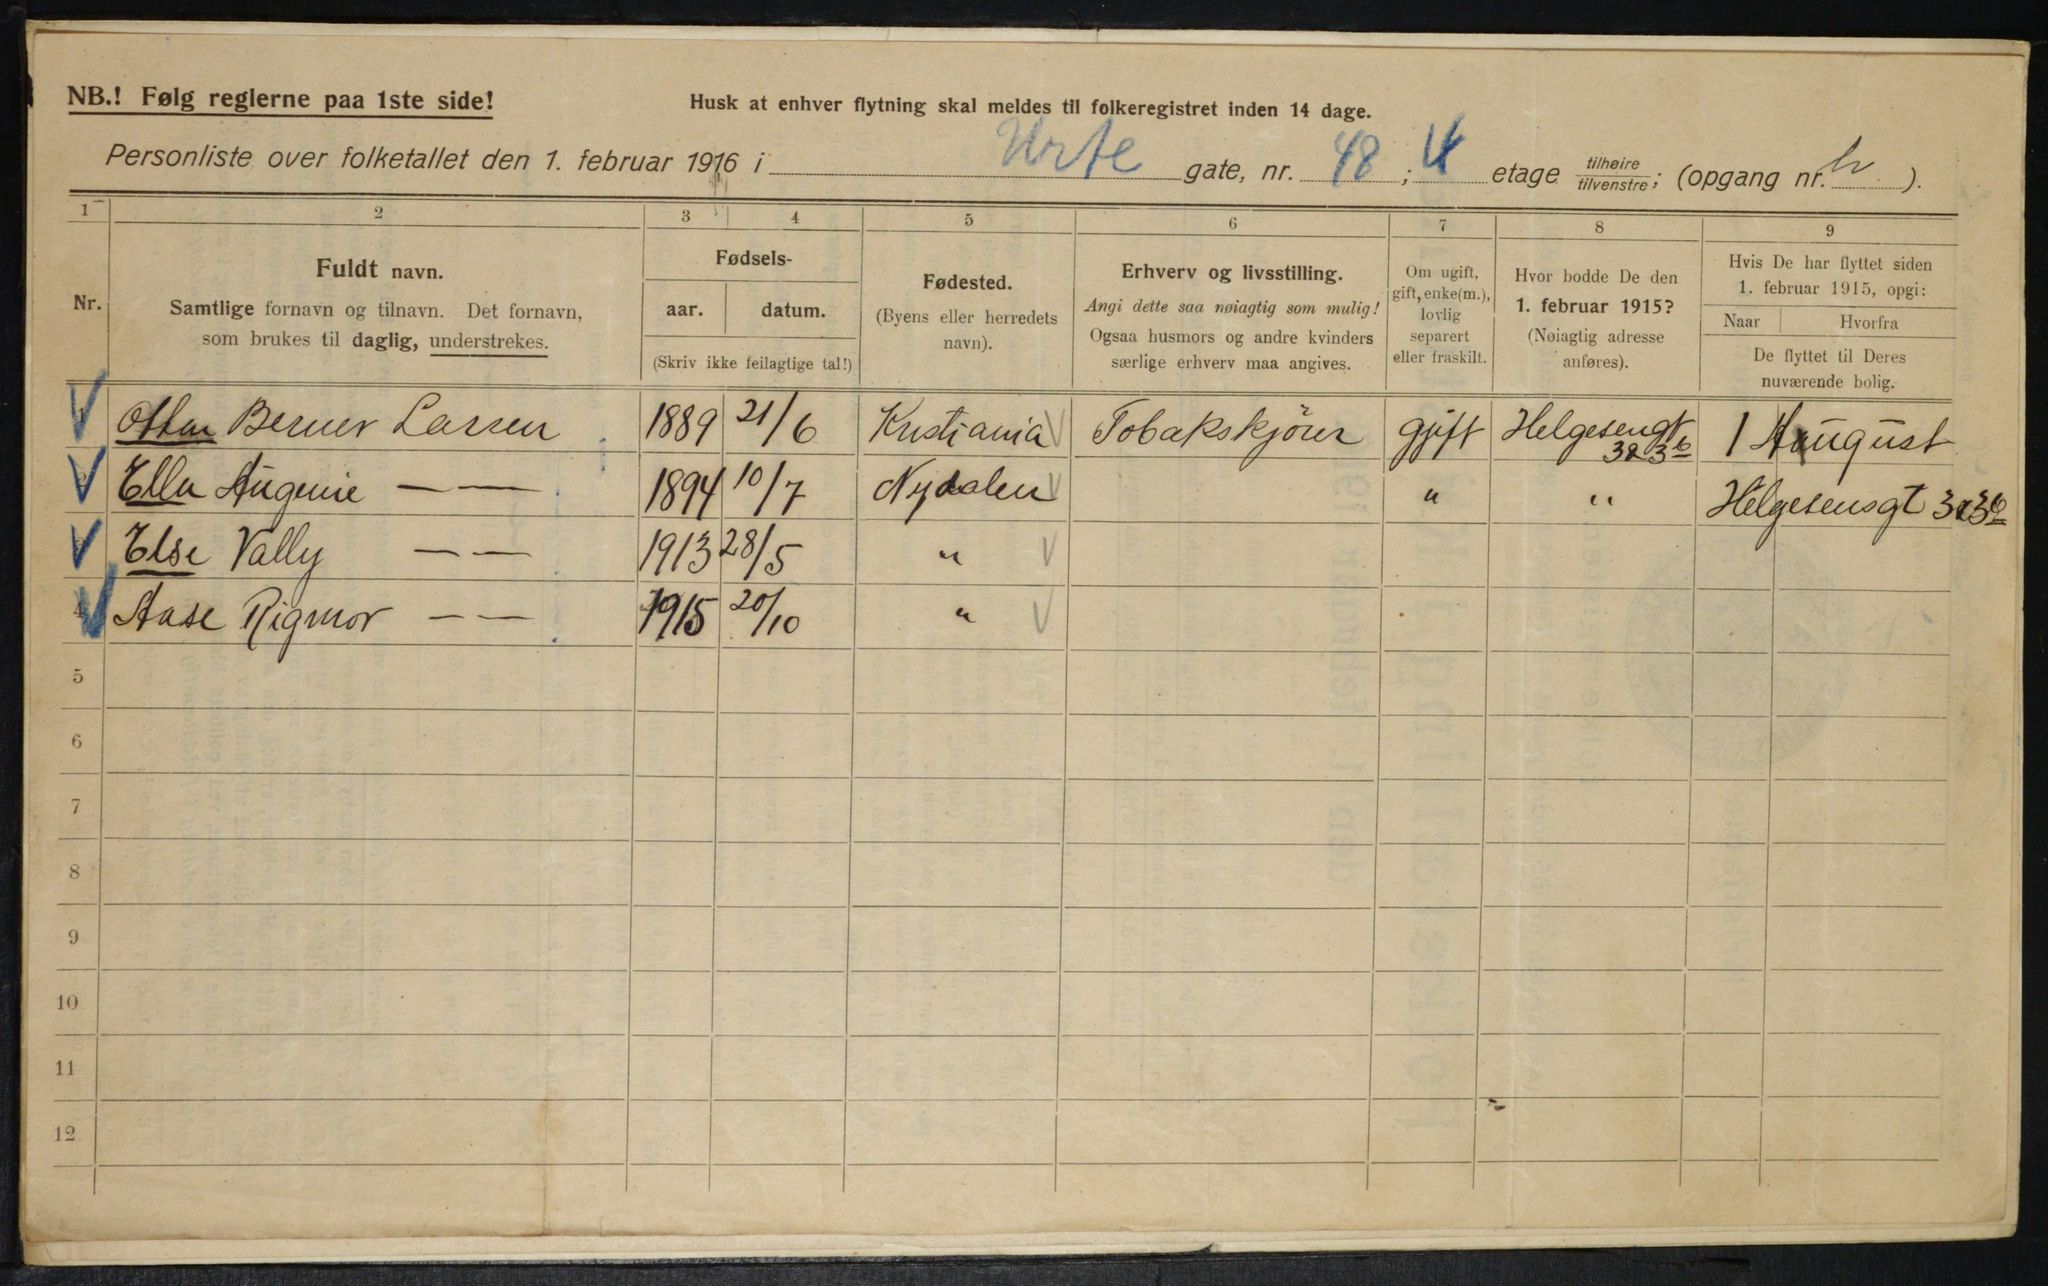 NB.! Følg reglerne paa 1ste side!
Husk at enhver flytning skal meldes til folkeregistret inden 14 dage.
Personliste over folketallet den 1. februar 1916 i Urte gate, nr. 48; 4 etage tilhøire/tilvenstre; (opgang nr. ).
1 2 3 4 5 6 7 8 9
Nr.
Fuldt navn.
Samtlige fornavn og tilnavn. Det fornavn,
som brukes til daglig, understrekes.
Fødsels-
aar. datum.
(Skriv ikke feilagtige tal!)
Fødested.
(Byens eller herredets
navn).
Erhverv og livsstilling.
Angi dette saa nøiagtig som mulig!
Ogsaa husmors og andre kvinders
særlige erhverv maa angives.
Om ugift,
gift, enke(m.),
lovlig
separert
eller fraskilt.
Hvor bodde De den
1. februar 1915?
(Nøiagtig adresse
anføres).
Hvis De har flyttet siden
1. februar 1915, opgi:
Naar Hvorfra
De flyttet til Deres
nuværende bolig.
1 Ottar Berner Larsen 1889 21/6 Kristiania Tobakskjörer gift Helgesengt 1 August
2 Ella Augenie — — 1894 10/7 Nydalen " " Helgesensgt
3 Else Vally — — 1913 28/5 "
4 Aase Rigmor — — 1915 20/10 "
5
6
7
8
9
10
11
12